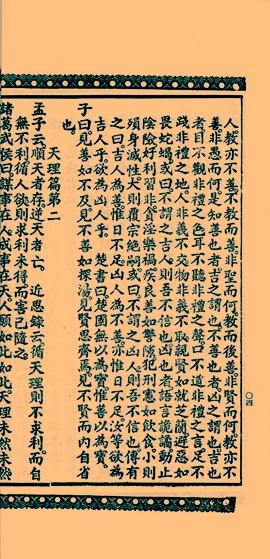 人教亦不善不教而善。非聖而何。教而後善。非賢而何。教亦不
善。非愚而何。是知善也者吉之謂也。不善也者凶之謂也。吉也
者。目不觀非禮之色。耳不聽非禮之聲。口不道非禮之言。足不
踐非禮之地。人非義不交。物非義不取。親賢如就芝蘭。避惡如
畏蛇蝎。或曰不謂之吉人。則吾不信也。凶也者。語言詭譎。動止
陰險。好利習非。貪淫樂禍。疾良善如讐隙。犯刑憲如飲食。小則
殞身滅性。大則覆宗絕嗣。或曰不謂之凶人。則吾不信也。傳有
之曰。吉人為善。惟日不足。凶人為不善。亦惟日不足。汝等欲為
吉人乎。欲為凶人乎。 楚書曰楚國無以為寶。惟善以為寶。
子曰見善如不及。見不善如探湯。見賢思齊焉。見不賢而內自省
也。
天理篇第二
孟子云。順天者存。逆天者亡。 近思錄云。循天理則不求利。而自
無不利。循人欲。則求利未得。而害己隨之。
諸葛武侯曰。謀事在人。成事在天。人願如此如此。天理未然未然
〇四